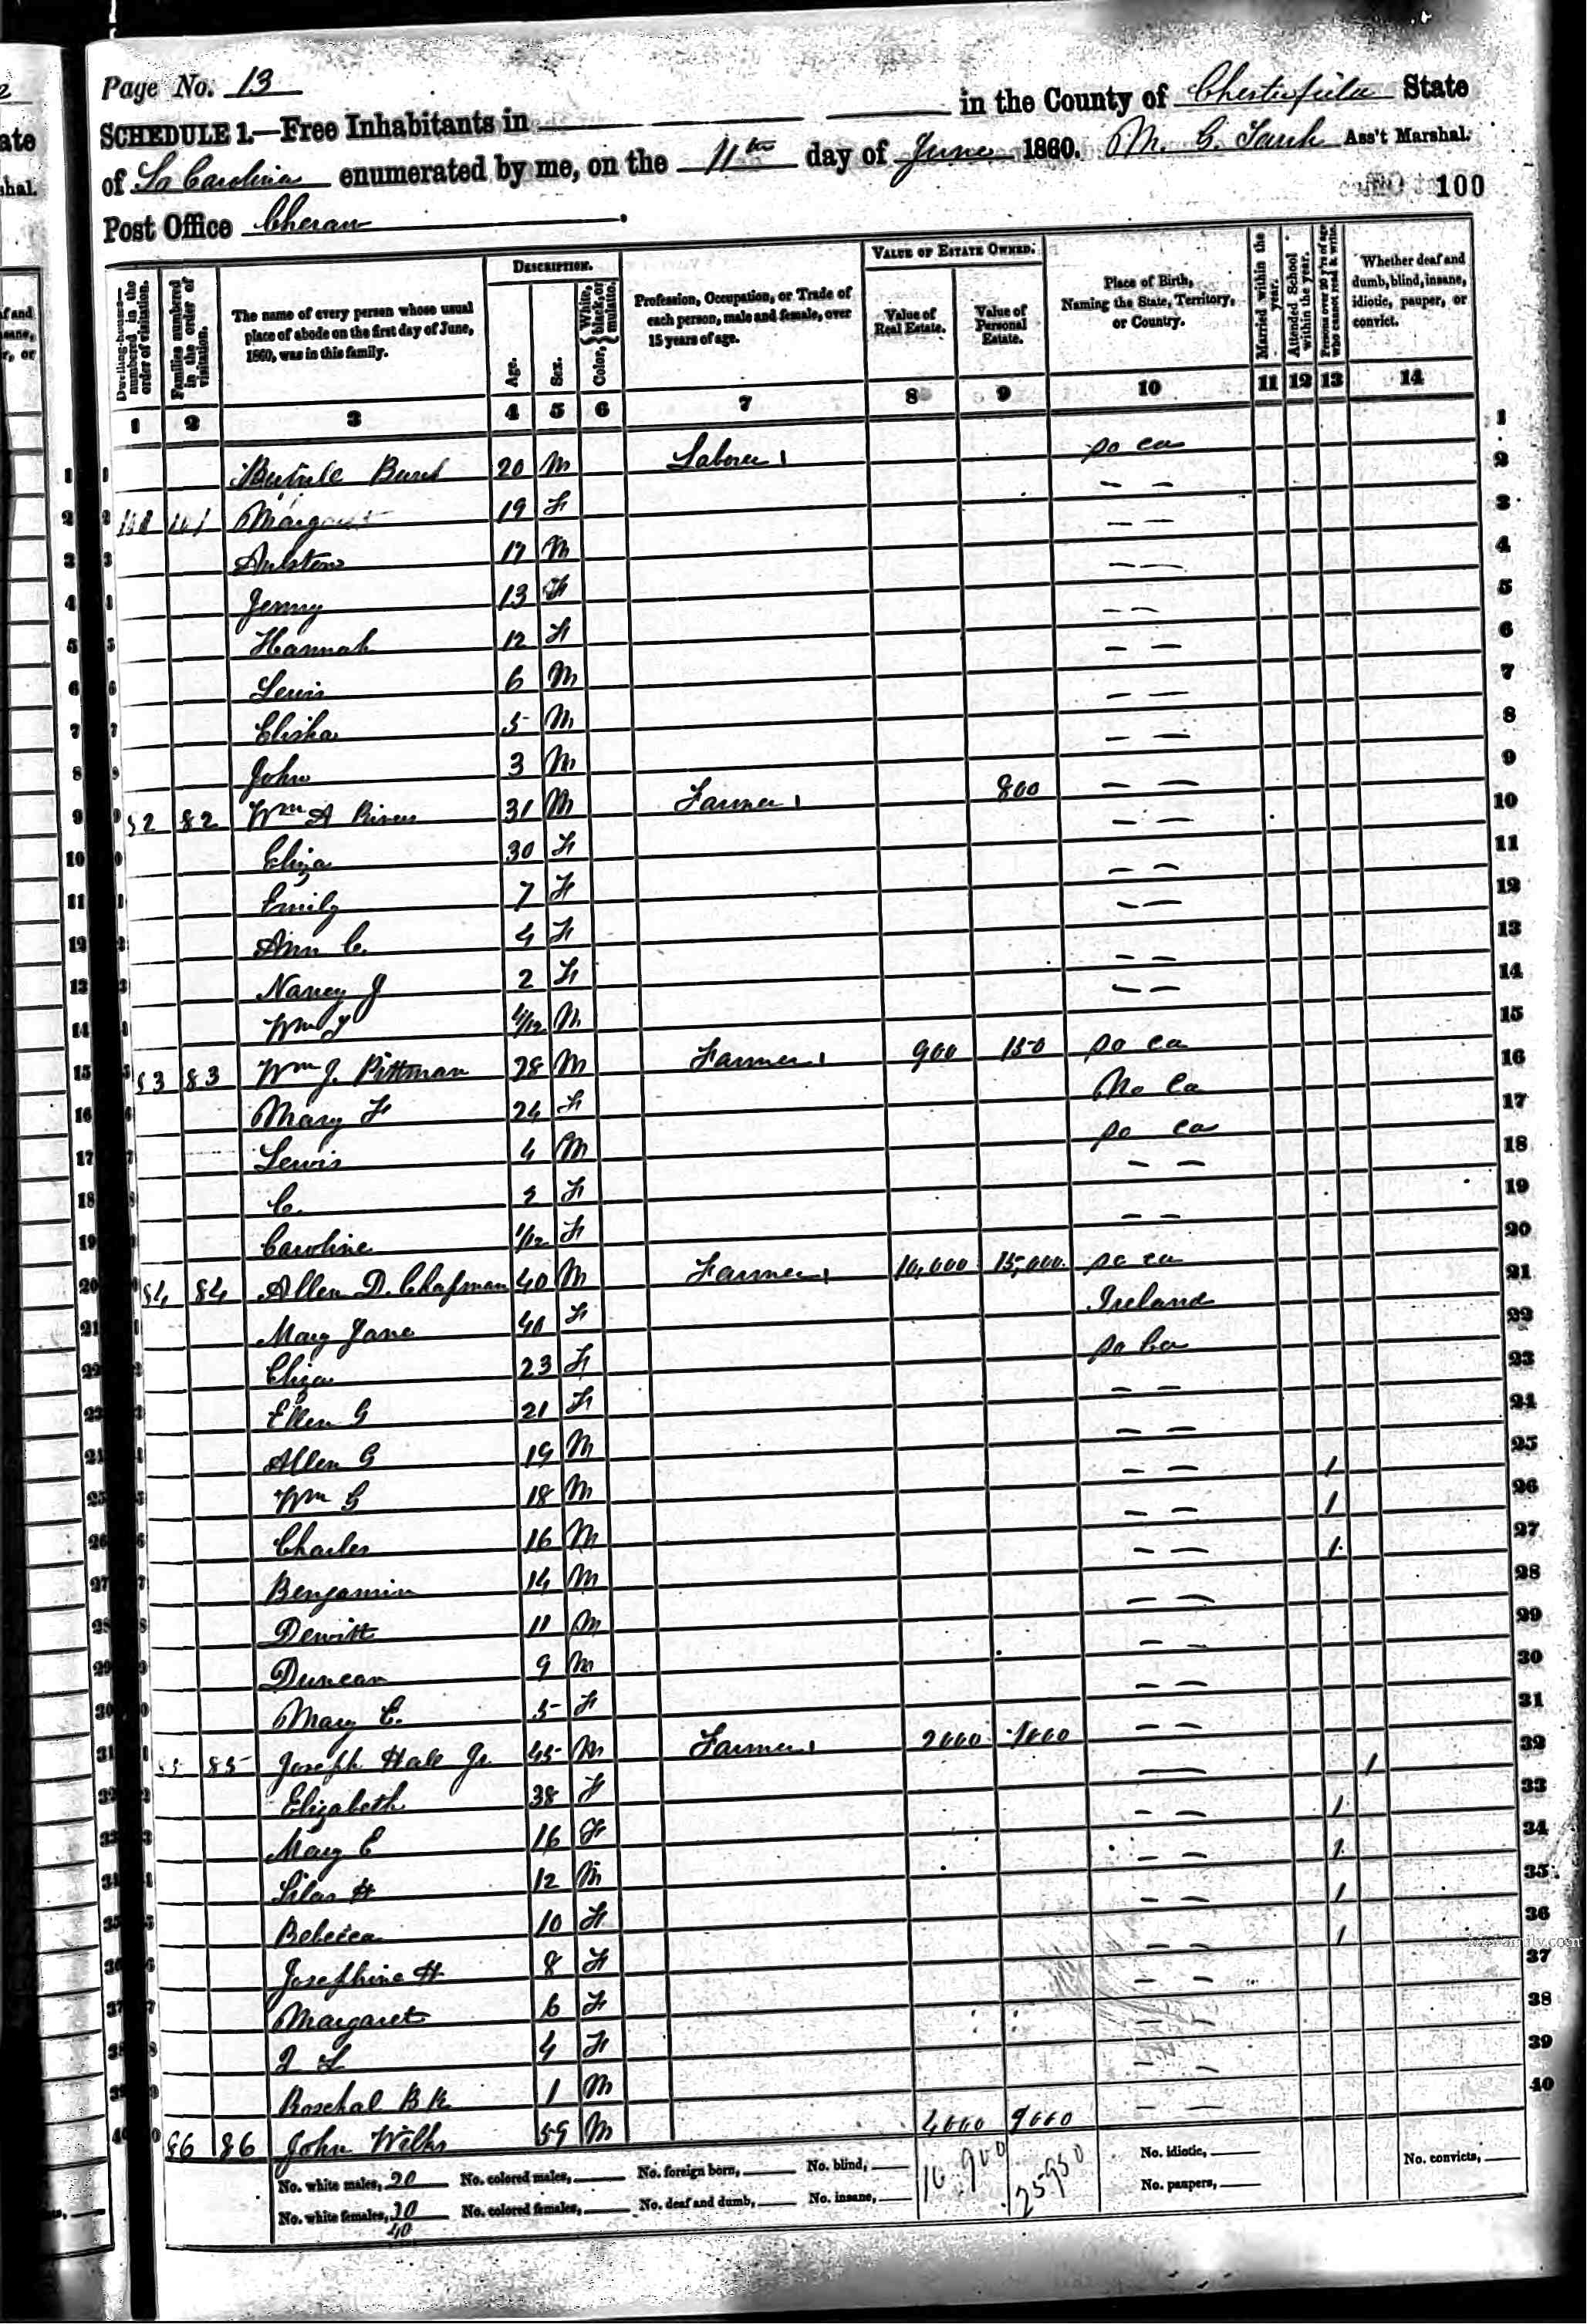 Page No. 13
SCHEDULE 1.—Free Inhabitants in in the County of Chesterfield State
of So Carolina enumerated by me, on the 11th day of June 1860. M. G. Ass't Marshal.
100
Post Office Cheraw
Dwelling-houses—numbered in the order of visitation.
Families numbered in the order of visitation.
The name of every person whose usual place of abode on the first day of June, 1860, was in this family.
DESCRIPTION.
Age.
Sex.
Color, White, black, or mulatto.
Profession, Occupation, or Trade of each person, male and female, over 15 years of age.
VALUE OF ESTATE OWNED.
Value of Real Estate.
Value of Personal Estate.
Place of Birth, Naming the State, Territory, or Country.
Married within the year.
Attended School within the year.
Persons over 20 y'rs of age who cannot read & write.
Whether deaf and dumb, blind, insane, idiotic, pauper, or convict.
1 2 3 4 5 6 7 8 9 10 11 12 13 14
1 20 M Laborer so ca
2 Margaret 19 F — —
3 17 M — —
4 Jenny 13 F — —
5 Hannah 12 F — —
6 Lewis 6 M — —
7 Elisha 5 M — —
8 John 3 M — —
9 82 82 Wm A Rivers 31 M Farmer 800 — —
10 Eliza 30 F — —
11 Emily 7 F — —
12 Ann C. 4 F — —
13 Nancy J 2 F — —
14 Wm J M — —
15 83 83 Wm J. Pittman 28 M Farmer 900 150 so ca
16 Mary F 24 F No Ca
17 Lewis 4 M so ca
18 C. 2 F — —
19 Caroline 1/12 F — —
20 84 84 Allen D. Chapman 40 M Farmer 10,000 15,000 so ca
21 Mary Jane 40 F Ireland
22 Eliza 23 F so Ca
23 Ellen G 21 F — —
24 Allen G 19 M — —
25 Wm G 18 M — — 1
26 Charles 16 M — — 1
27 Benjamin 14 M — — 1
28 Dewitt 11 M — —
29 Duncan 9 M — —
30 Mary C. 5 F — —
31 85 85 Joseph Hall Jr. 45 M Farmer 2000 1000 — —
32 Elizabeth 38 F — — 1
33 Mary E 16 F — — 1
34 Silas H 12 M — — 1
35 Rebecca 10 F — — 1
36 Josephine H 8 F — — 1
37 Margaret 6 F — —
38 4 F — —
39 B R 1 M — —
40 86 86 John Wilks 59 M 4000 9000 — —
No. white males, 20 No. colored males, No. foreign born, No. blind, 16,900 25950 No. idiotic, No. convicts,
No. white females, 20 No. colored females, No. deaf and dumb, No. insane, No. paupers,
40